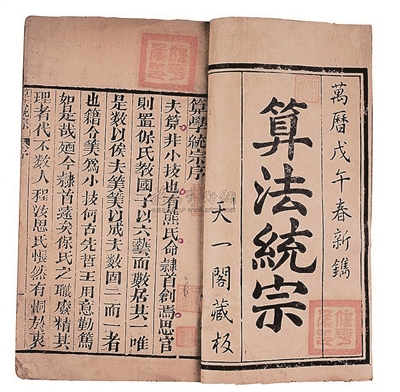 萬曆戊午春新鐫
算法統宗
天一閣藏板
算學統宗序
夫算非小技也有熊氏命隷首創焉周官
則置保氏教國子以六藝而數居其一唯
是數以俟夫筭筭以成夫數固二而一者
也籍令筭爲小技何古先哲王用意勤篤
如是哉廼今隷首邈矣保氏之職廢精其
理者代不數人程汝思氏悵然有恫於衷